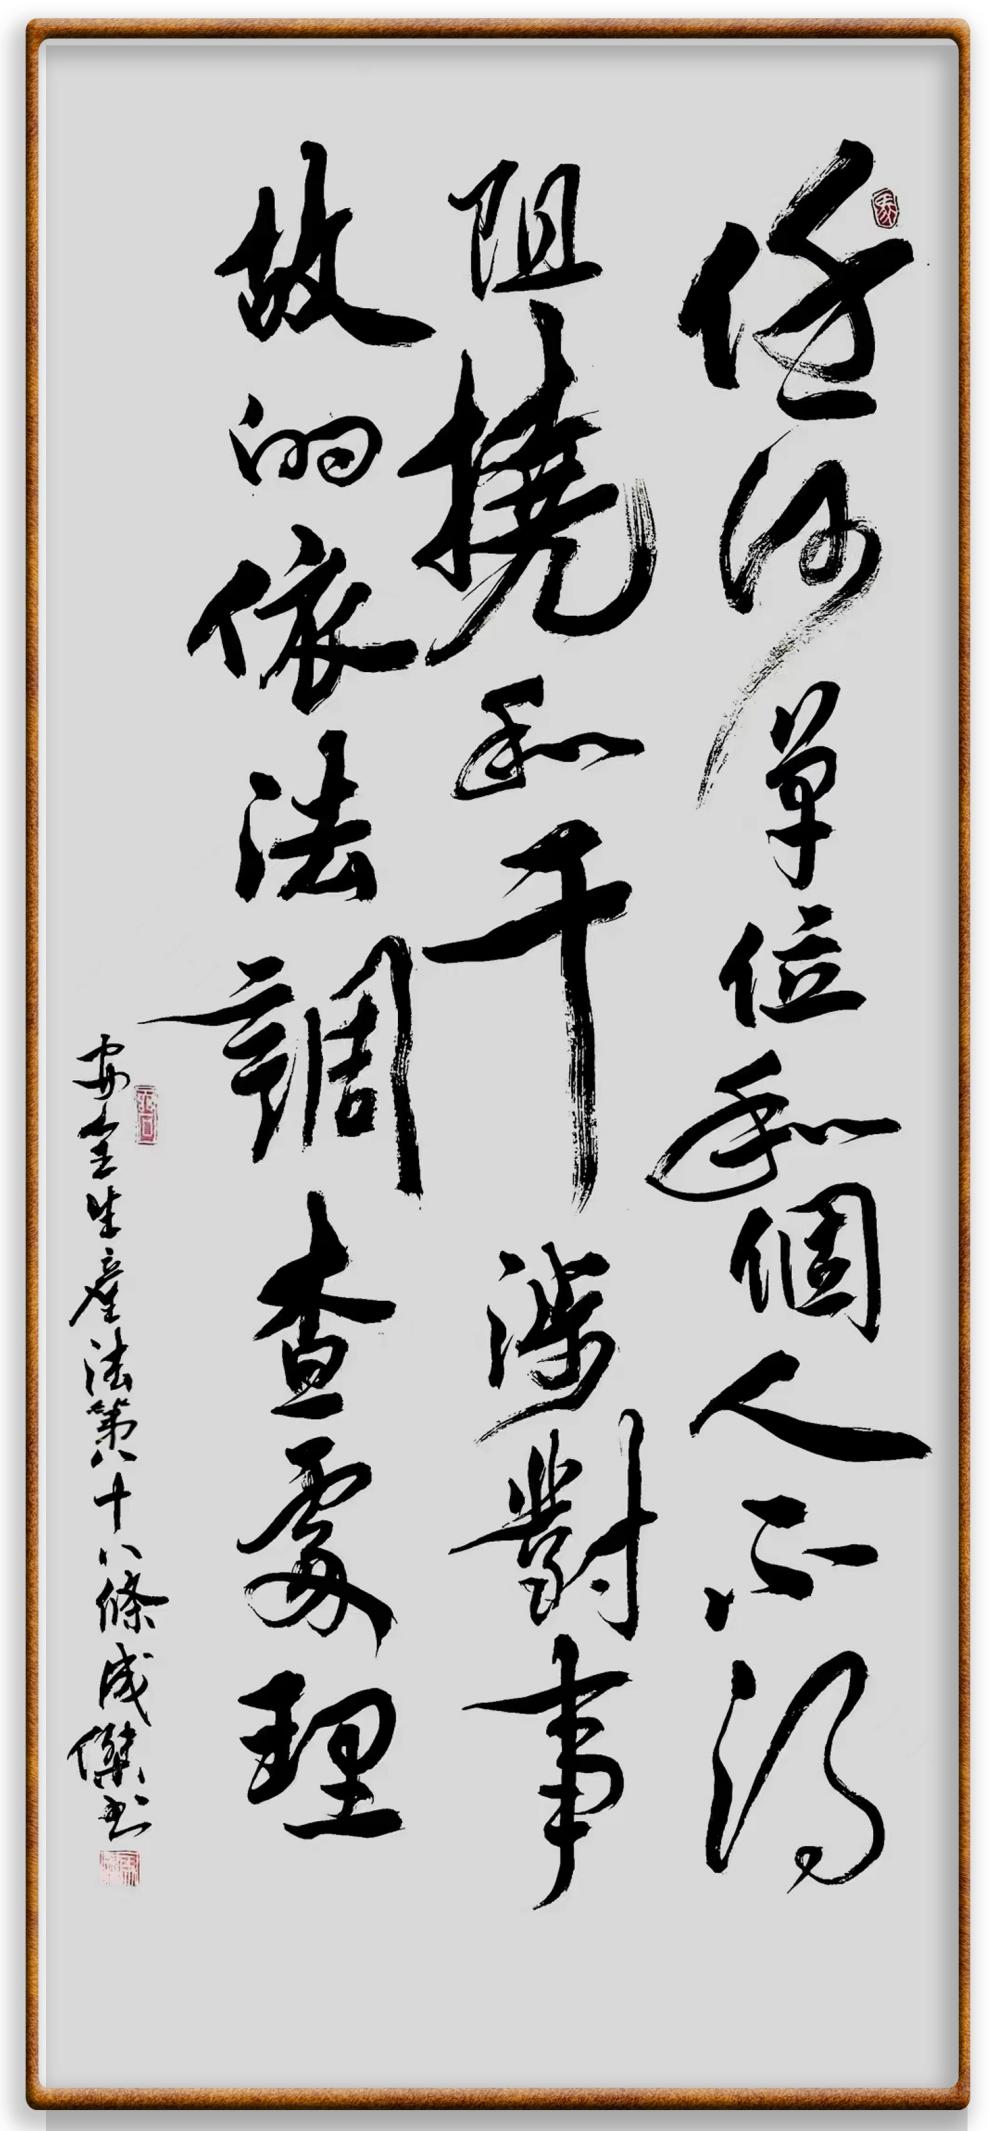 任何單位和個人不得
阻撓和干涉對事
故的依法調查處理
安全生產法第八十八條成傑書